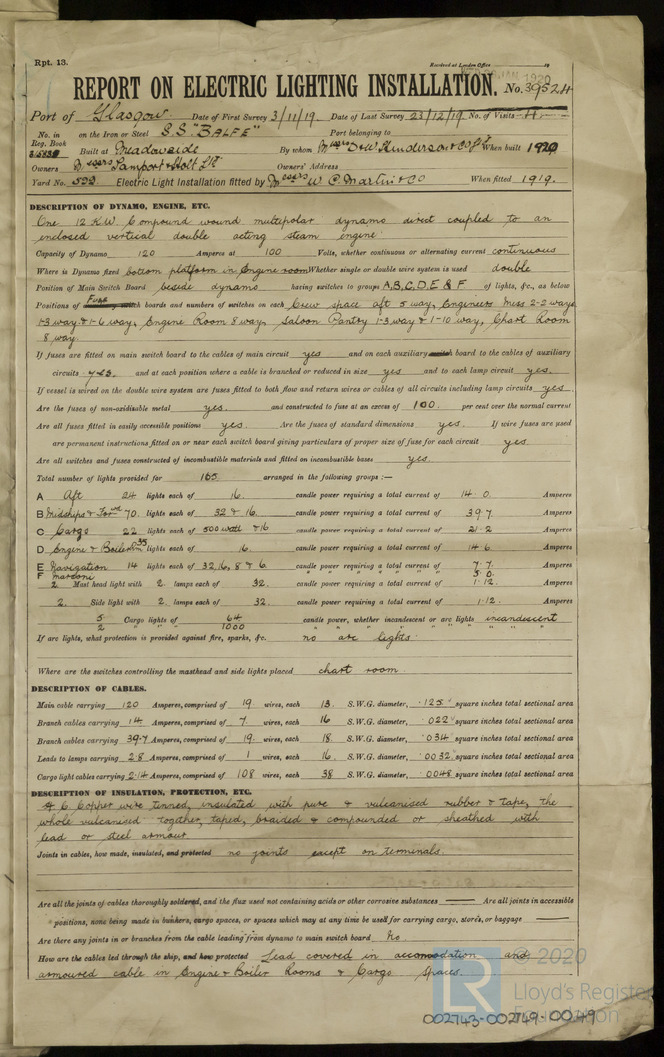 Rpt. 13.
Received at London Office 19
JAN 1920
REPORT ON ELECTRIC LIGHTING INSTALLATION. No. 39524
Port of Glasgow Date of First Survey 3/11/19. Date of Last Survey 23/12/19 No. of Visits 11
No. in Reg. Book on the Iron or Steel S.S. "BALFE" Port belonging to
Built at Meadowside By whom Messrs D & W Henderson & Co Ld When built 1920
Owners Messrs Lamport & Holt Ld Owners' Address
Yard No. 522 Electric Light Installation fitted by Messrs W C Martin & Co When fitted 1919.
DESCRIPTION OF DYNAMO, ENGINE, ETC.
One 12 K.W. Compound wound multipolar dynamo direct coupled to an
enclosed vertical double acting steam engine
Capacity of Dynamo 120 Amperes at 100 Volts, whether continuous or alternating current continuous
Where is Dynamo fixed bottom platform in Engine room Whether single or double wire system is used double
Position of Main Switch Board beside dynamo having switches to groups A,B,C,D,E & F of lights, &c., as below
Positions of Fuse boards and numbers of switches on each Crew space aft 5 way, Engineers Mess 2-2 way
1-3 way & 1-6 way, Engine Room 8 way, Saloon Pantry 1-3 way & 1-10 way, Chart Room
8 way.
If fuses are fitted on main switch board to the cables of main circuit yes and on each auxiliary switch board to the cables of auxiliary
circuits yes. and at each position where a cable is branched or reduced in size yes and to each lamp circuit yes.
If vessel is wired on the double wire system are fuses fitted to both flow and return wires or cables of all circuits including lamp circuits yes.
Are the fuses of non-oxidisable metal yes. and constructed to fuse at an excess of 100. per cent over the normal current
Are all fuses fitted in easily accessible positions yes. Are the fuses of standard dimensions yes. If wire fuses are used
are permanent instructions fitted on or near each switch board giving particulars of proper size of fuse for each circuit yes.
Are all switches and fuses constructed of incombustible materials and fitted on incombustible bases yes.
Total number of lights provided for 165 arranged in the following groups :—
A Aft 24 lights each of 16. candle power requiring a total current of 14.0. Amperes
B Midships & Forwd 70. lights each of 32 & 16. candle power requiring a total current of 39.7 Amperes
C Cargo 22 lights each of 500 watt & 16 candle power requiring a total current of 21.2 Amperes
D Engine & Boiler Rm 35 lights each of 16. candle power requiring a total current of 14.6 Amperes
E Navigation 14 lights each of 32,16, 8 & 6. candle power requiring a total current of 7.7. Amperes
F Marconi 5.0.
2 Mast head light with 2. lamps each of 32. candle power requiring a total current of 1.12. Amperes
2. Side light with 2. lamps each of 32. candle power requiring a total current of 1.12. Amperes
5 Cargo lights of 64 candle power, whether incandescent or arc lights incandescent
2 " " 1000 " " " " "
If arc lights, what protection is provided against fire, sparks, &c. no arc lights.
Where are the switches controlling the masthead and side lights placed chart room.
DESCRIPTION OF CABLES.
Main cable carrying 120 Amperes, comprised of 19 wires, each 13. S.W.G. diameter, .125 square inches total sectional area
Branch cables carrying 14 Amperes, comprised of 7 wires, each 16 S.W.G. diameter, .022 square inches total sectional area
Branch cables carrying 39.7 Amperes, comprised of 19. wires, each 18. S.W.G. diameter, .034 square inches total sectional area
Leads to lamps carrying 2.8 Amperes, comprised of 1 wires, each 16. S.W.G. diameter, .0032 square inches total sectional area
Cargo light cables carrying 2.14 Amperes, comprised of 108 wires, each 38 S.W.G. diameter, .0048 square inches total sectional area
DESCRIPTION OF INSULATION, PROTECTION, ETC.
Copper wire tinned, insulated with pure & vulcanised rubber & tape, the
whole vulcanised together, taped, braided & compounded or sheathed with
lead or steel armour.
Joints in cables, how made, insulated, and protected no joints except on terminals.
Are all the joints of cables thoroughly soldered, and the flux used not containing acids or other corrosive substances — Are all joints in accessible
positions, none being made in bunkers, cargo spaces, or spaces which may at any time be used for carrying cargo, stores, or baggage —
Are there any joints in or branches from the cable leading from dynamo to main switch board No
How are the cables led through the ship, and how protected Lead covered in accomodation and
armoured cable in Engine & Boiler Rooms & Cargo Spaces.
LR © 2020
Lloyd's Register
Foundation
002743-002749-0049